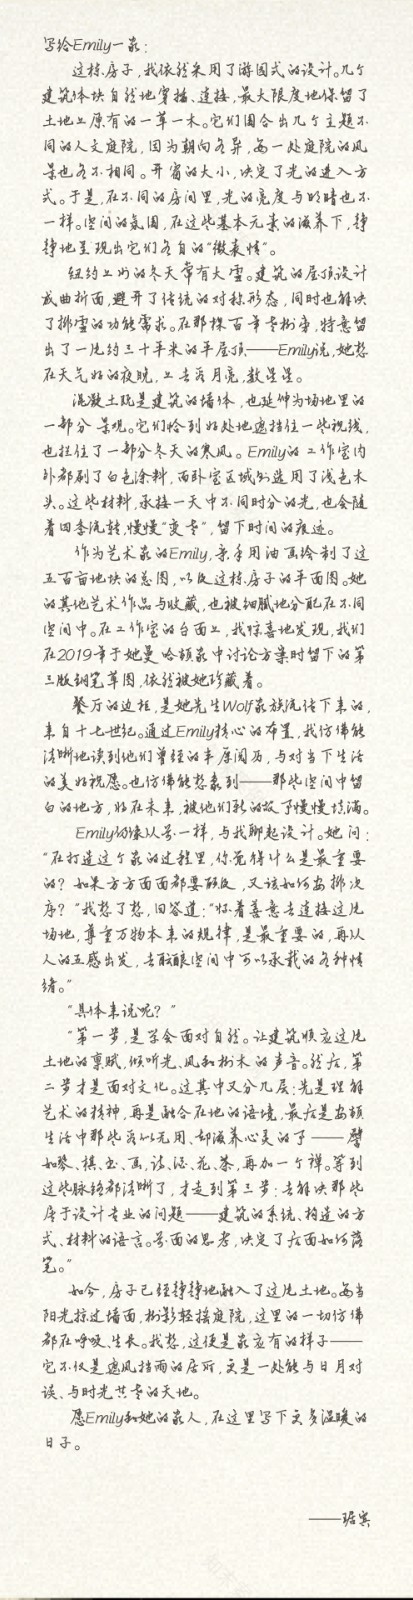 写给Emily一家：
这栋房子，我依然采用了游园式的设计。几个
建筑体块自然地穿插、连接，最大限度地保留了
土地上原有的一草一木。它们围合出几个主题不
同的人文庭院，因为朝向各异，每一处庭院的风
景也各不相同。开窗的大小，决定了光的进入方
式。于是，在不同的房间里，光的亮度与明暗也不
一样。空间的氛围，在这些基本元素的滋养下，静
静地呈现出它们各自的“微表情”。
纽约上州的冬天常有大雪。建筑的屋顶设计
成曲折面，避开了传统的对称形态，同时也解决
了排雪的功能需求。在那棵百年老树旁，特意留
出了一片约三十平米的平屋顶——Emily说，她想
在天气好的夜晚，上去看月亮，数星星。
混凝土既是建筑的墙体，也延伸为场地里的
一部分景观。它们恰到好处地遮挡住一些视线，
也挡住了一部分冬天的寒风。Emily的工作室内
外都刷了白色涂料，而卧室区域则选用了浅色木
头。这些材料，承接一天中不同时分的光，也会随
着四季流转，慢慢“变老”，留下时间的痕迹。
作为艺术家的Emily，亲手用油画绘制了这
五百亩地块的总图，以及这栋房子的平面图。她
的其他艺术作品与收藏，也被细腻地分配在不同
空间中。在工作室的台面上，我惊喜地发现，我们
在2019年于她曼哈顿家中讨论方案时留下的第
三版钢笔草图，依然被她珍藏着。
餐厅的边柜，是她先生Wolf家族流传下来的，
来自十七世纪。通过Emily精心的布置，我仿佛能
清晰地读到他们曾经的丰厚阅历，与对当下生活
的美好祝愿。也仿佛能想象到——那些空间中留
白的地方，好在未来，被他们新的故事慢慢填满。
Emily仍像从前一样，与我聊起设计。她问：
“在打造这个家的过程里，你觉得什么是最重要
的？如果方方面面都要顾及，又该如何安排次
序？”我想了想，回答道：“怀着善意去连接这片
场地，尊重万物本来的规律，是最重要的，再以
人的五感出发，去酝酿空间中可以承载的各种情
绪。”
“具体来说呢？”
“第一步，是学会面对自然。让建筑顺应这片
土地的禀赋，倾听光、风和树木的声音。然后，第
二步才是面对文化。这其中又分几层：先是理解
艺术的精神，再是融合在地的语境，最后是安顿
生活中那些看似无用、却滋养心灵的事——譬
如琴、棋、书、画、诗、酒、花、茶，再加一个禅。等到
这些脉络都清晰了，才走到第三步：去解决那些
属于设计专业的问题——建筑的系统、构造的方
式、材料的语言。前面的思考，决定了后面如何落
笔。”
如今，房子已经静静地融入了这片土地。每当
阳光掠过墙面，树影轻摇庭院，这里的一切仿佛
都在呼吸、生长。我想，这便是家应有的样子——
它不仅是遮风挡雨的居所，更是一处能与日月对
谈、与时光共老的天地。
愿Emily和她的家人，在这里写下更多温暖的
日子。
——琚宾